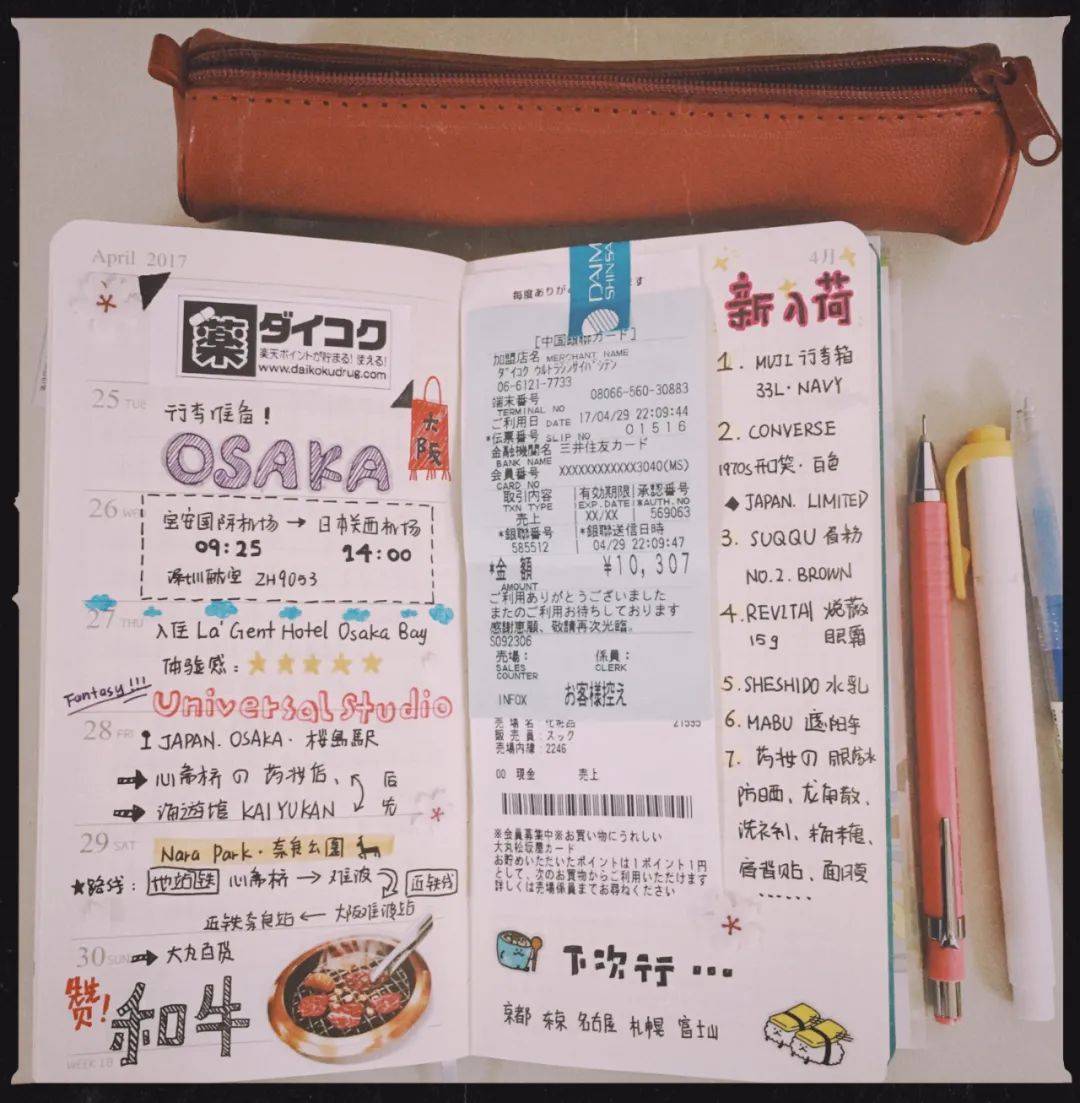 April 2017
薬 ダイコク
楽天ポイントが貯まる! 使える!
www.daikokudrug.com
25 TUE
行李准备!
OSAKA
大阪
26 WED
宝安国际机场 → 日本关西机场
09:25 14:00
深圳航空 ZH9053
27 THU
入住 La'Gent Hotel Osaka Bay
体验感: ★★★★★
Fantasy!!!
Universal Studio
28 FRI
JAPAN. OSAKA. 桜島駅
→ 心斋桥 の 药妆店、 后
→ 海遊馆 KAIYUKAN 先
29 SAT
Nara Park · 奈良公園
★路线: 地铁 心斋桥 → 难波 近铁线
近铁奈良站 ← 大阪难波站
30 SUN
→ 大丸百货
赞!
和牛
WEEK 18
毎度あり
DAIM
SHINSA
[中国銀聯カード]
加盟店名 MERCHANT NAME
ダイコク ウルトラシンサイバシテン
06-6121-7733
端末番号 08066-560-30883
TERMINAL NO
ご利用日 DATE 17/04/29 22:09:44
*伝票番号 SLIP NO 01516
金融機関名 三井住友カード
BANK NAME
会員番号 XXXXXXXXXXXX3040(MS)
CARD NO
取引内容 有効期限 承認番号
TXN TYPE EXP.DATE *AUTH.NO
売上 XX/XX 569063
*銀聯番号 *銀聯送信日時
585512 04/29 22:09:47
*金 額 ¥10,307
AMOUNT
ご利用ありがとうございました
またのご利用お待ちしております
感謝惠顧、敬請再次光臨。
S092306
売場: 係員:
SALES CLERK
COUNTER
INFOX お客様控え
売場名:化粧品 21595
販売員:スック
売場内線:2246
00 現金 売上
※会員募集中※お買い物にうれしい
大丸松坂屋カード
お貯めいただいたポイントは1ポイント1円
として、次のお買物からご利用いただけます
詳しくは売場係員までお尋ねください
下次行...
京都 东京 名古屋 札幌 富士山
4月
新入荷
1. MUJI 行李箱
33L·NAVY
2. CONVERSE
1970s 开口笑·白色
◆ JAPAN. LIMITED
3. SUQQU 眉粉
NO.2. BROWN
4. REVITAL
15g 眼霜
5. SHESHIDO 水乳
6. MABU 遮阳伞
7. 药妆の 眼药水
防晒、龙角散、
洗衣剂、梅子糖、
肩背贴、面膜
......